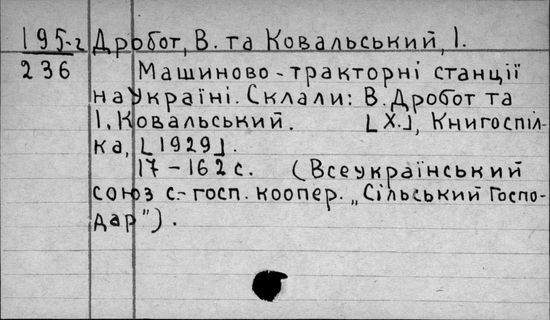 195-г Дробот, В. та Ковальський, І.
236 Машиново-тракторні станції
на Україні. Склали: В. Дробот та
І. Ковальський. [Х.], Книгоспіл-
ка, [1929].
17-162 с. (Всеукраїнський
союз с.-госп. коопер. „Сільський Госпо-
дар").